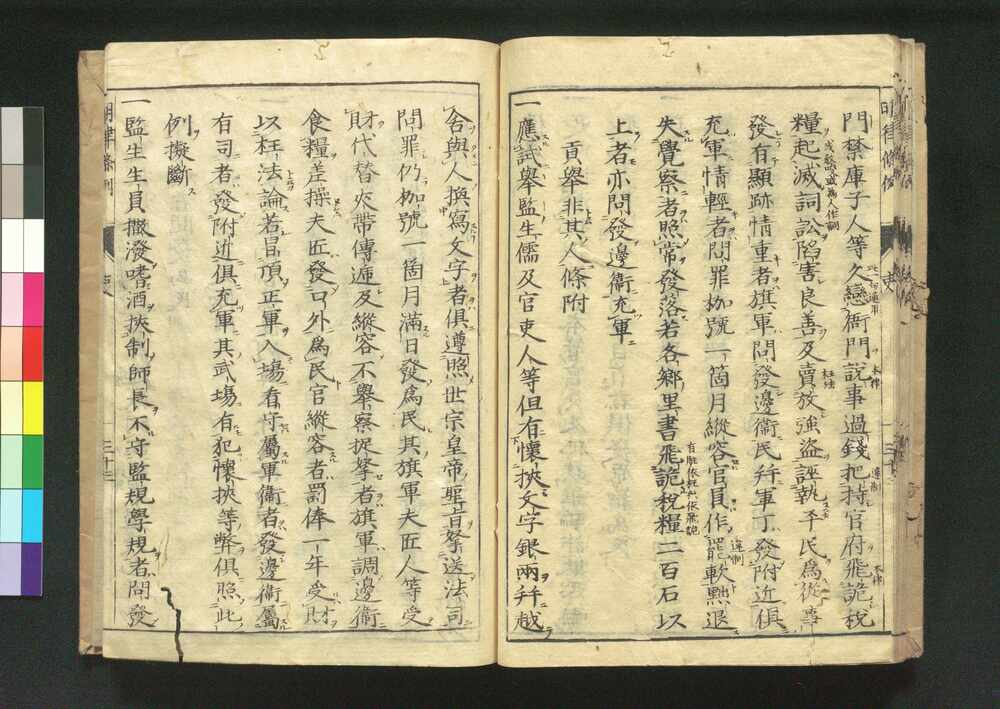 門禁庫子人等久戀衙門說事過錢把持官府飛詭稅
糧起滅詞訟陷害良善及賣放強盜誣執平民為從事
發有顯跡情重者旗軍問發邊衛民并軍丁發附近俱
充軍情輕者問罪枷號一箇月縱容官員作罷軟黜退
失覺察者照常發落若各鄉里書飛詭稅糧二百石以
上者亦問發邊衛充軍
貢舉非其人條附
一應試舉監生儒及官吏人等但有懷挾文字銀兩幷越
舍與人換寫文字者俱遵照世宗皇帝聖旨拏送法司
問罪仍枷號一箇月滿日發為民其旗軍夫匠人等受
財代替夾帶傳遞及縱容不舉察捉拏者旗軍調邊衛
食糧差操夫匠發口外為民官縱容者罰俸一年受財
以枉法論若冒頂正軍入場看守屬軍衛者發邊衛屬
有司者發附近俱充軍其武場有犯懷挾等弊俱照此
例擬斷
一監生生員撒潑嗜酒挾制師長不守監規學規者問發
明律條例
吏
三十二